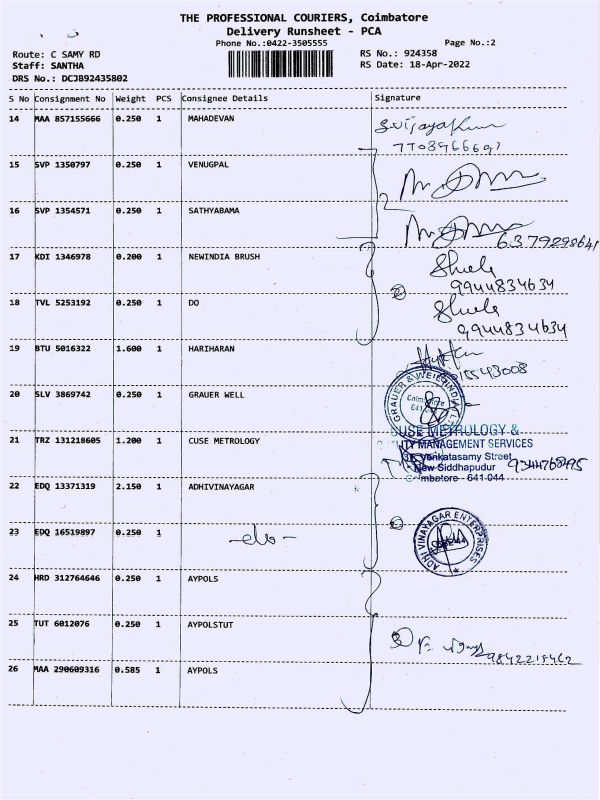 THE PROFESSIONAL COURIERS, Coimbatore
Delivery Runsheet - PCA
Phone No.:0422-3505555 Page No.:2
Route: C SAMY RD RS No.: 924358
Staff: SANTHA RS Date: 18-Apr-2022
DRS No.: DCJB92435802
S No Consignment No Weight PCS Consignee Details Signature
14 MAA 857155666 0.250 1 MAHADEVAN
7708966691
15 SVP 1350797 0.250 1 VENUGPAL
16 SVP 1354571 0.250 1 SATHYABAMA
6379298641
17 KDI 1346978 0.200 1 NEWINDIA BRUSH
9944834634
18 TVL 5253192 0.250 1 DO
9944834634
19 BTU 5016322 1.600 1 HARIHARAN
20 SLV 3869742 0.250 1 GRAUER WELL
21 TRZ 131218605 1.200 1 CUSE METROLOGY
CUSE METROLOGY &
MANAGEMENT SERVICES
Venkatasamy Street
New Siddhapudur
641 044
22 EDQ 13371319 2.150 1 ADHIVINAYAGAR
23 EDQ 16519897 0.250 1
ADHI VINAYAGAR ENTERPRISES
24 HRD 312764646 0.250 1 AYPOLS
25 TUT 6012076 0.250 1 AYPOLSTUT
26 MAA 290609316 0.585 1 AYPOLS